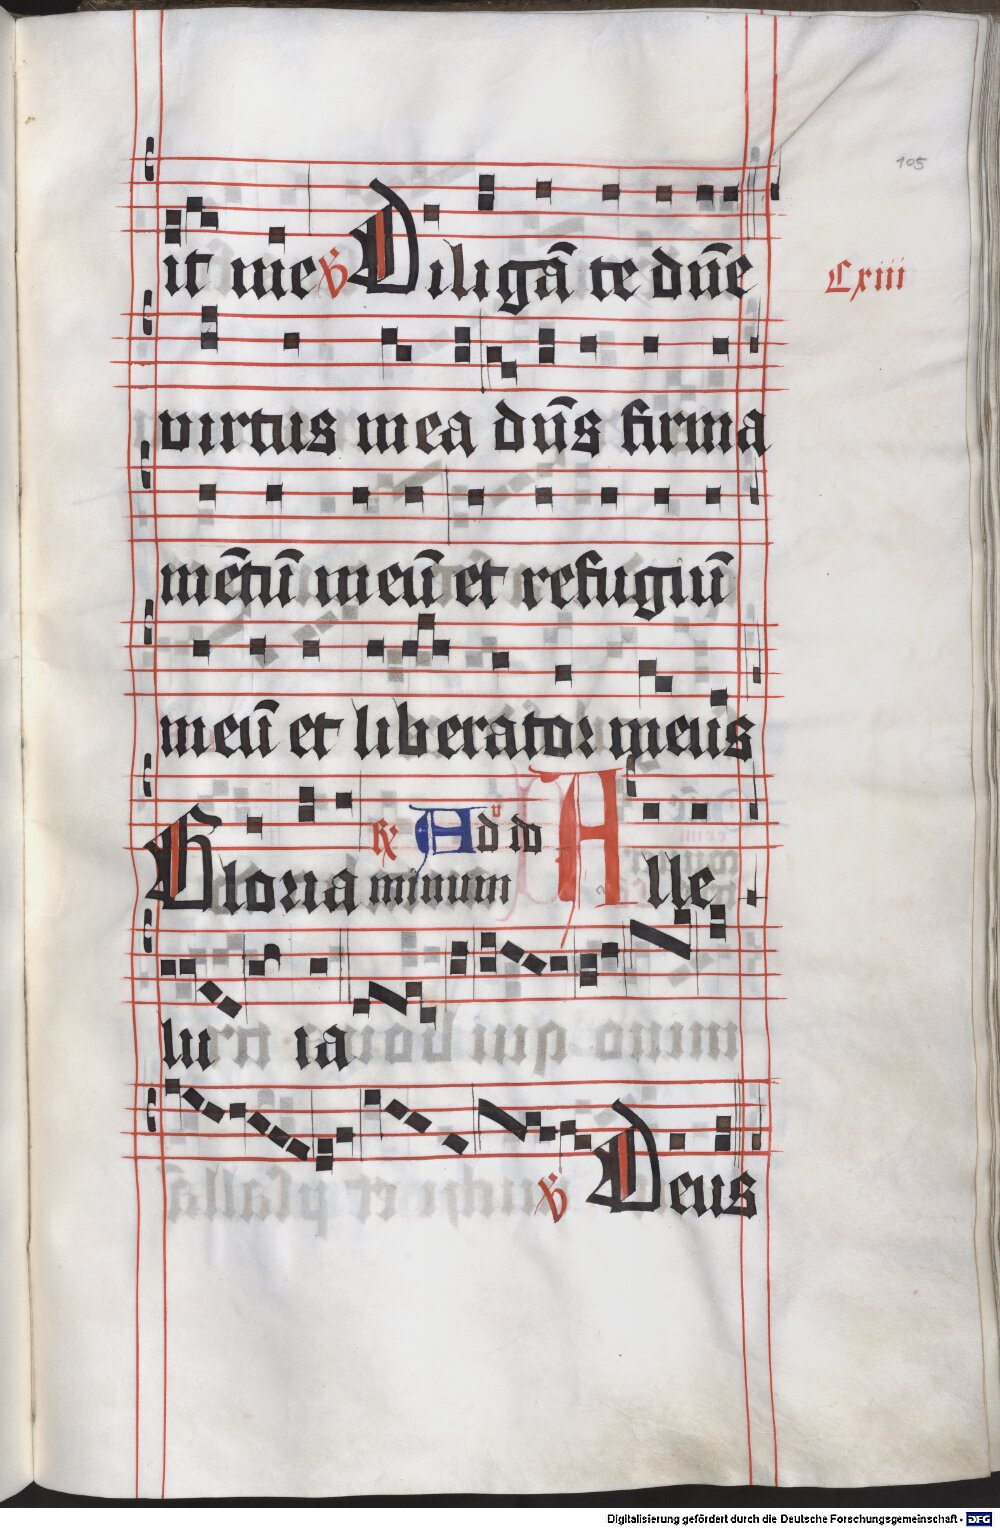 105
it me ℣ Diligā te dn̄e
Cxiii
virtus mea dn̄s firma
mētū meū et refugiū
meū et liberator meus
Gloria ℟ Ad do
minum Alle
lu ia
℣ Deus
Digitalisierung gefördert durch die Deutsche Forschungsgemeinschaft - DFG